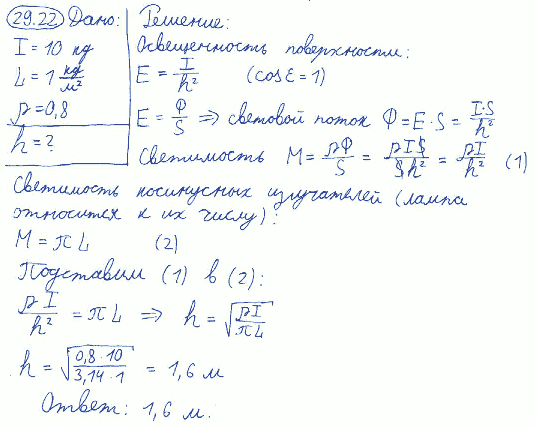 29.22 Дано: Решение:
I = 10 кд
L = 1 кд/м²
ρ = 0,8
h = ?
Освещенность поверхности:
E = I/h² (cos ε = 1)
E = Φ/S ⇒ световой поток Φ = E·S = I·S/h²
Светимость M = ρΦ/S = ρIS/Sh² = ρI/h² (1)
Светимость косинусных излучателей (лампа
относится к их числу):
M = πL (2)
Подставим (1) в (2):
ρI/h² = πL ⇒ h = √(ρI/πL)
h = √(0,8·10/3,14·1) = 1,6 м
Ответ: 1,6 м.